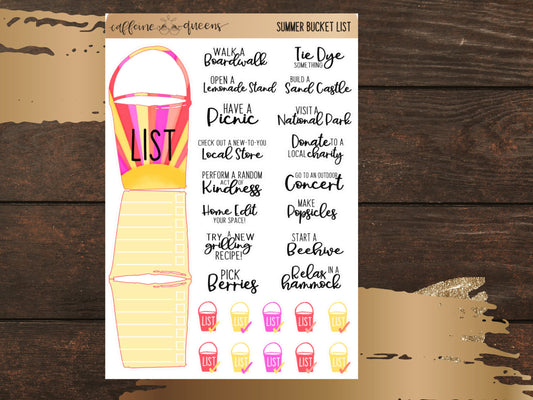 caffeine queens
SUMMER BUCKET LIST
LIST
WALK A
Boardwalk
Tie Dye
SOMETHING
OPEN A
Lemonade Stand
BUILD A
Sand Castle
HAVE A
Picnic
VISIT A
National Park
CHECK OUT A NEW-TO-YOU
Local Store
Donate TO A
LOCAL charity
PERFORM A RANDOM
ACT OF
Kindness
GO TO AN OUTDOOR
Concert
Home Edit
YOUR SPACE!
MAKE
Popsicles
TRY A NEW
grilling
RECIPE!
START A
Beehive
PICK
Berries
Relax IN A
hammock
LIST
LIST
LIST
LIST
LIST
LIST
LIST
LIST
LIST
LIST